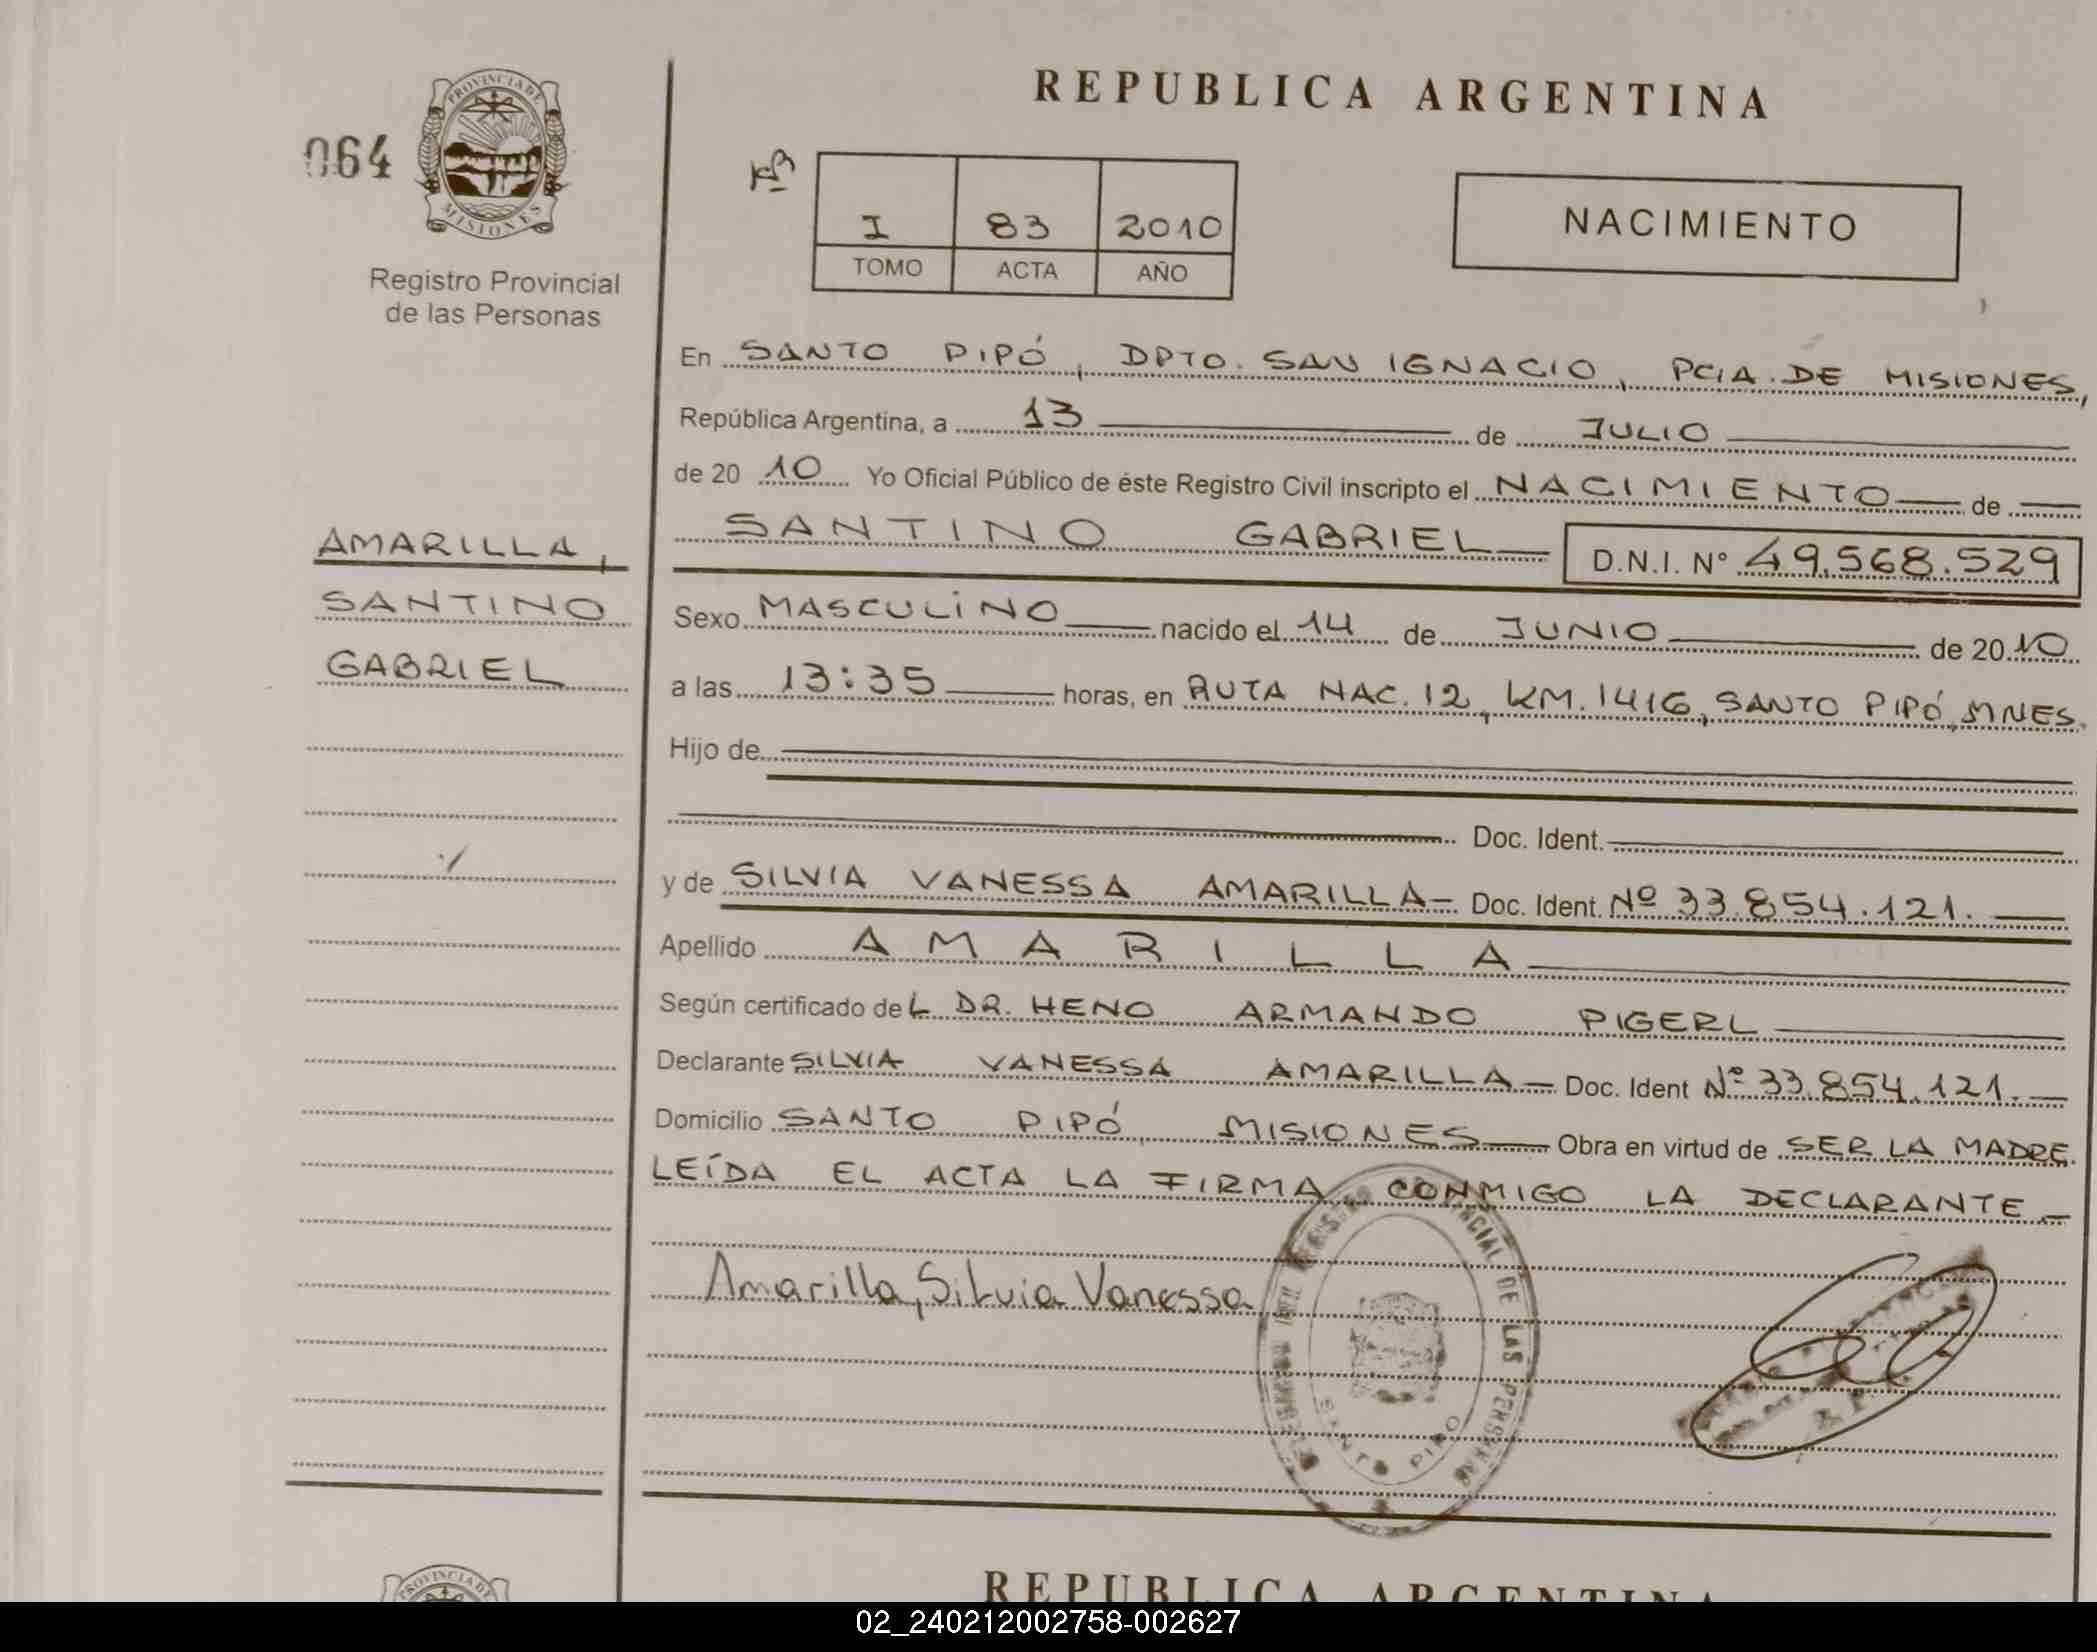 REPUBLICA ARGENTINA
064
PROVINCIA DE
MISIONES
Registro Provincial
de las Personas
I 83 2010
TOMO ACTA AÑO
NACIMIENTO
En SANTO PIPÓ, DPTO. SAN IGNACIO, PCIA. DE MISIONES,
República Argentina, a 13 de JULIO
de 20 10 Yo Oficial Público de éste Registro Civil inscripto el NACIMIENTO de
AMARILLA,
SANTINO
GABRIEL
SANTINO GABRIEL D.N.I. N° 49.568.529
Sexo MASCULINO nacido el 14 de JUNIO de 20 10
a las 13:35 horas, en RUTA NAC. 12, KM. 1416, SANTO PIPÓ, MNES.
Hijo de
Doc. Ident.
y de SILVIA VANESSA AMARILLA Doc. Ident. Nº 33.854.121.
Apellido AMARILLA
Según certificado de L DR. HENO ARMANDO PIGERL
Declarante SILVIA VANESSA AMARILLA Doc. Ident Nº 33.854.121.
Domicilio SANTO PIPÓ, MISIONES Obra en virtud de SER LA MADRE.
LEÍDA EL ACTA LA FIRMA CONMIGO LA DECLARANTE.
Amarilla, Silvia Vanessa
DE LAS PERSONAS
SANTO PIPO
PROVINCIA DE
REPUBLICA ARGENTINA
02_240212002758-002627